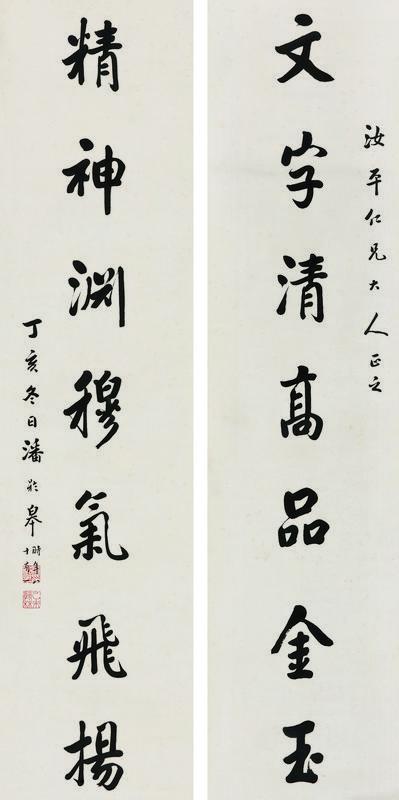 汝平仁兄大人正之
文字清高品金玉
精神淵穆氣飛揚
丁亥冬日潘齡皋時年八十有一